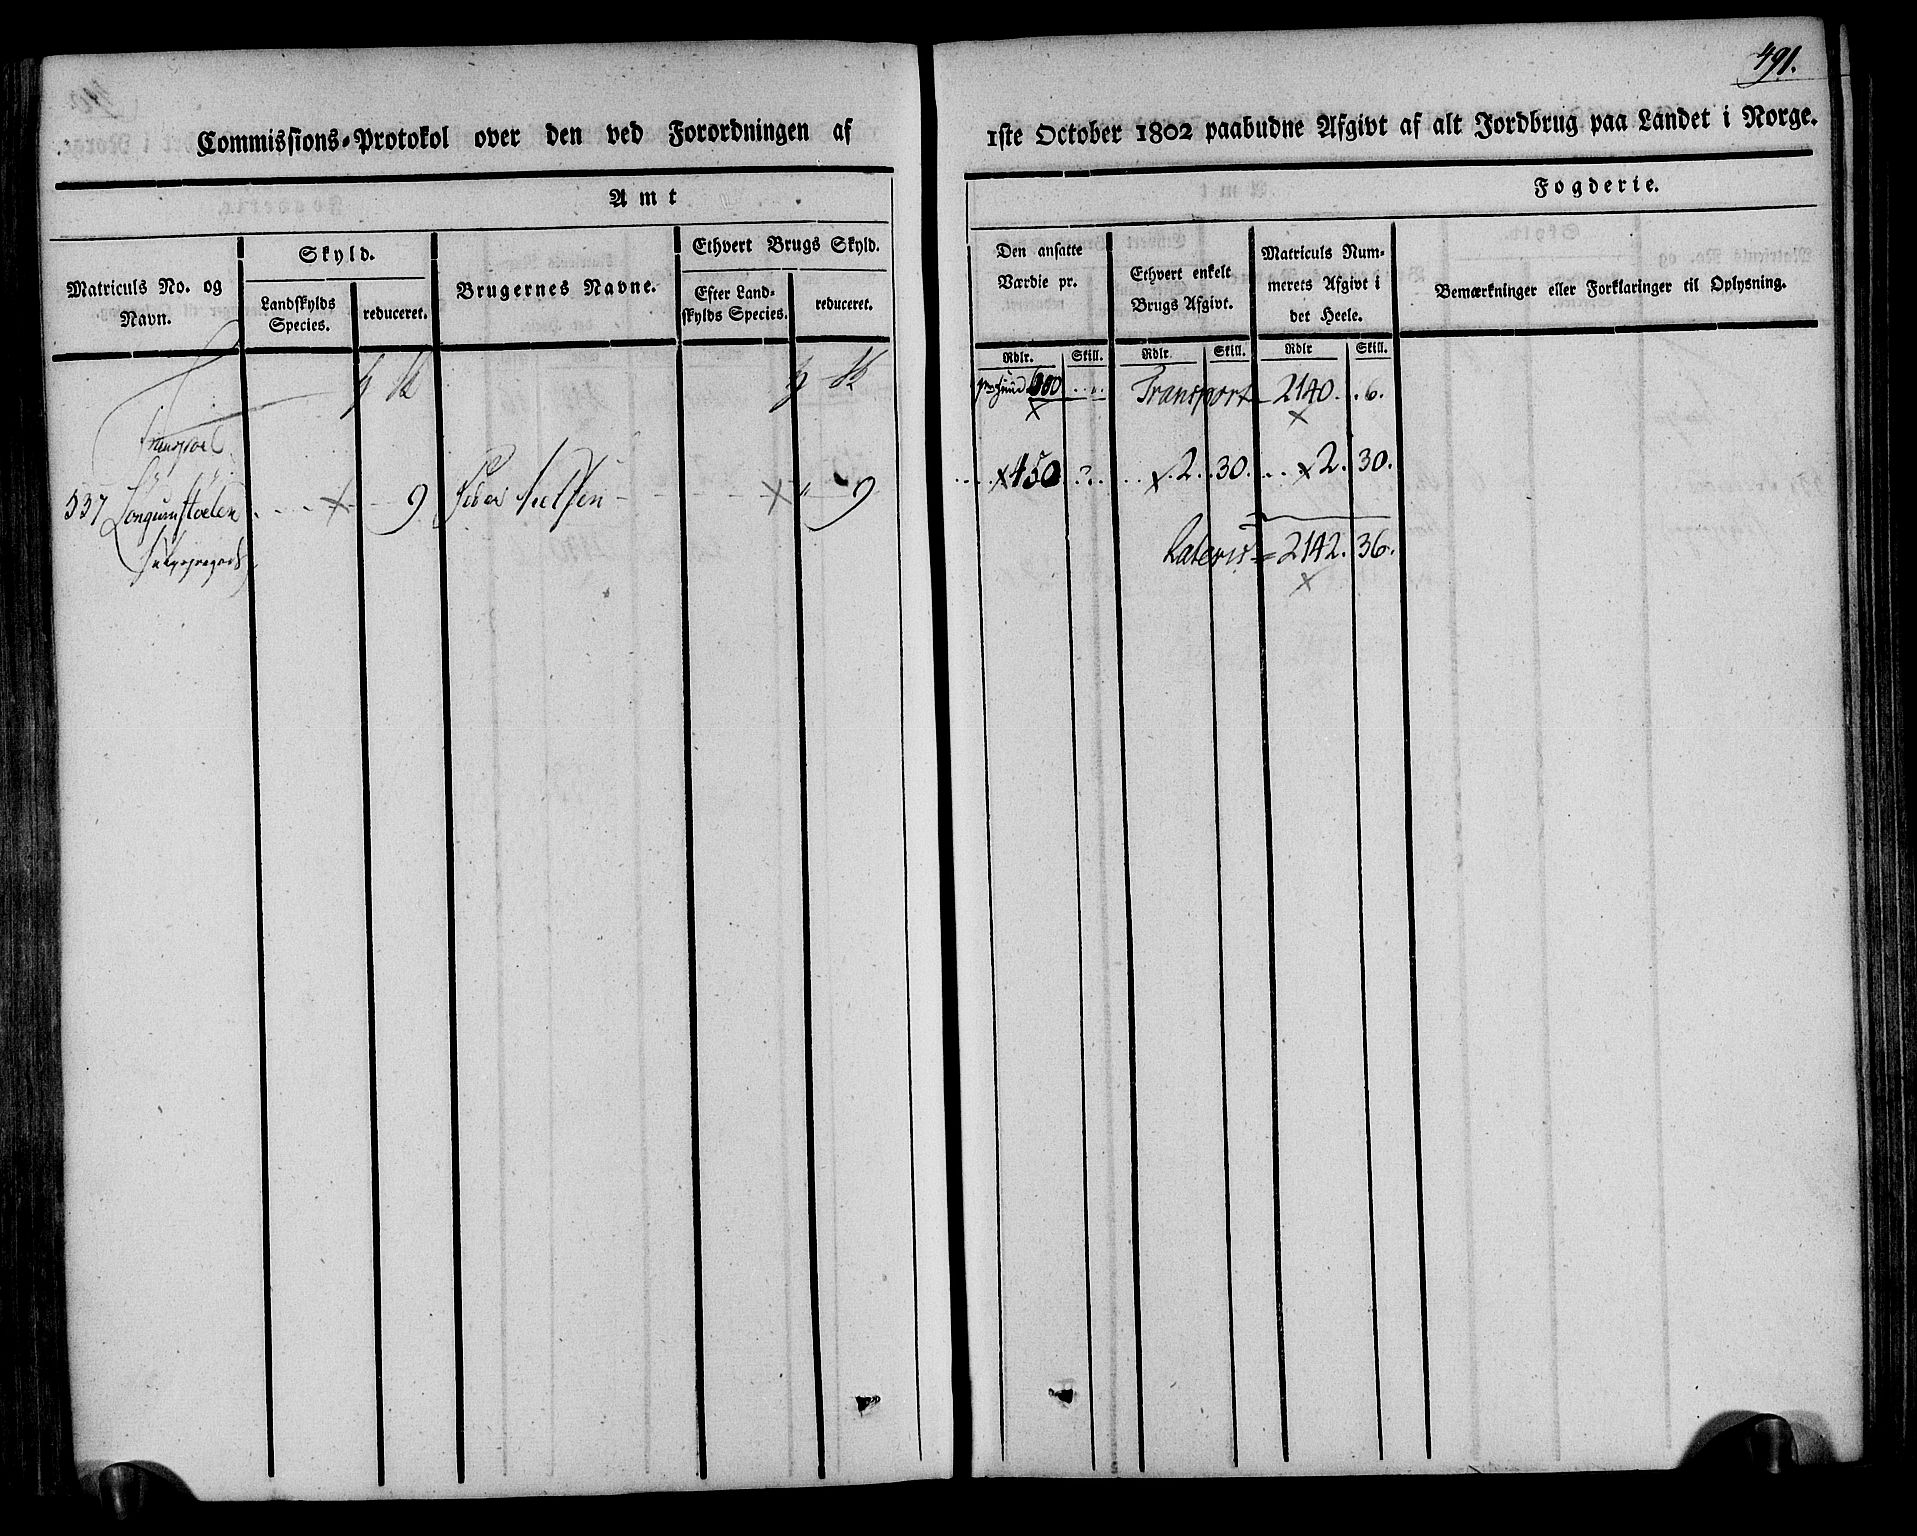 491.
Commissions-Protokol over den ved Forordningen af
1ste October 1802 paabudne Afgivt af alt Jordbrug paa Landet i Norge.
Amt
Fogderie.
Matriculs No. og
Navn.
Skyld.
Landskylds
Species.
reduceret.
Brugernes Navne.
Ethvert Brugs Skyld.
Efter Land-
skylds Species.
reduceret.
Den ansatte
Værdie pr.
Ethvert enkelt
Brugs Afgivt.
Matriculs Num-
merets Afgivt i
det Heele.
Bemærkninger eller Forklaringer til Oplysning.
Rdlr. Skill. Rdlr. Skill. Rdlr Skill.
Transport 2140. 6.
537 Longumstoelen 9 9
450 2. 30. 2. 30.
Lateris 2142. 36.